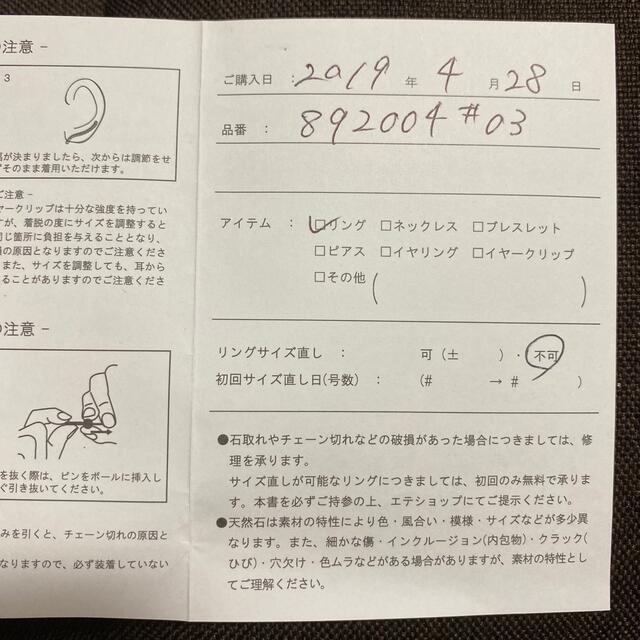 の注意 -
3
が決まりましたら、次からは調節をせ
ずそのまま着用いただけます。
ご注意 -
ヤークリップは十分な強度を持ってい
すが、着脱の度にサイズを調整すると
同じ箇所に負担を与えることとなり、
損の原因となりますのでご注意くださ
また、サイズを調整しても、耳から
ることがありますのでご注意くださ
の注意 -
を抜く際は、ピンをボールに挿入し
ぐ引き抜いてください。
みを引くと、チェーン切れの原因と
なりますので、必ず装着していない
ご購入日 : 2019 年 4 月 28 日
品番 : 892004 #03
アイテム : □リング □ネックレス □ブレスレット
□ピアス □イヤリング □イヤークリップ
□その他 ( )
リングサイズ直し : 可 (± )・不可
初回サイズ直し日(号数) : (# → # )
●石取れやチェーン切れなどの破損があった場合につきましては、修
理を承ります。
サイズ直しが可能なリングにつきましては、初回のみ無料で承りま
す。本書を必ずご持参の上、エテショップにてご提示ください。
●天然石は素材の特性により色・風合い・模様・サイズなどが多少異
なります。また、細かな傷・インクルージョン(内包物)・クラック
(ひび)・穴欠け・色ムラなどがある場合がありますが、素材の特性とし
てご理解ください。